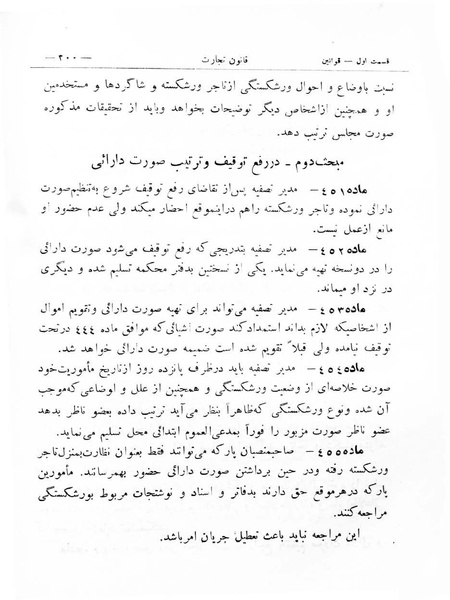 قسمت اول — قوانین
قانون تجارت
— ۲۰۰ —
نسبت باوضاع و احوال ورشکستگی ازتاجر ورشکسته و شاگردها و مستخدمین
او و همچنین ازاشخاص دیگر توضیحات بخواهد وباید از تحقیقات مذکوره
صورت مجلس ترتیب دهد.
مبحث‌دوم ـ دررفع توقیف وترتیب صورت دارائی
ماده۴۵۱ — مدیر تصفیه پس‌از تقاضای رفع توقیف شروع به‌تنظیم‌صورت
دارائی نموده وتاجر ورشکسته راهم دراینموقع احضار میکند ولی عدم حضور او
مانع ازعمل نیست.
ماده۴۵۲ — مدیر تصفیه بتدریجی‌که رفع توقیف می‌شود صورت دارائی
را در دونسخه تهیه می‌نماید. یکی از نسختین بدفتر محکمه تسلیم شده و دیگری
در نزد او میماند.
ماده۴۵۳ — مدیر تصفیه می‌تواند برای تهیه صورت دارائی وتقویم اموال
از اشخاصیکه لازم بداند استمداد‌کند صورت اشیائی‌که موافق ماده ۴۴۴ درتحت
توقیف نیامده ولی قبلاً تقویم شده است ضمیمه صورت دارائی خواهد شد.
ماده۴۵۴ — مدیر تصفیه باید درظرف پانزده روز ازتاریخ مأموریت‌خود
صورت خلاصه‌ای از وضعیت ورشکستگی و همچنین از علل و اوضاعی که‌موجب
آن شده ونوع ورشکستگی که‌ظاهراً بنظر می‌آید ترتیب داده بعضو ناظر بدهد
عضو ناظر صورت مزبور را فوراً بمدعی‌العموم ابتدائی محل تسلیم می‌نماید.
ماده۴۵۵ — صاحبمنصبان پارکه می‌توانند فقط بعنوان نظارت‌بمنزل‌تاجر
ورشکسته رفته ودر حین برداشتن صورت دارائی حضور بهم‌رسانند. مأمورین
پارکه درهرموقع حق دارند بدفاتر و اسناد و نوشتجات مربوط بورشکستگی
مراجعه‌کنند.
این مراجعه نباید باعث تعطیل جریان امرباشد.